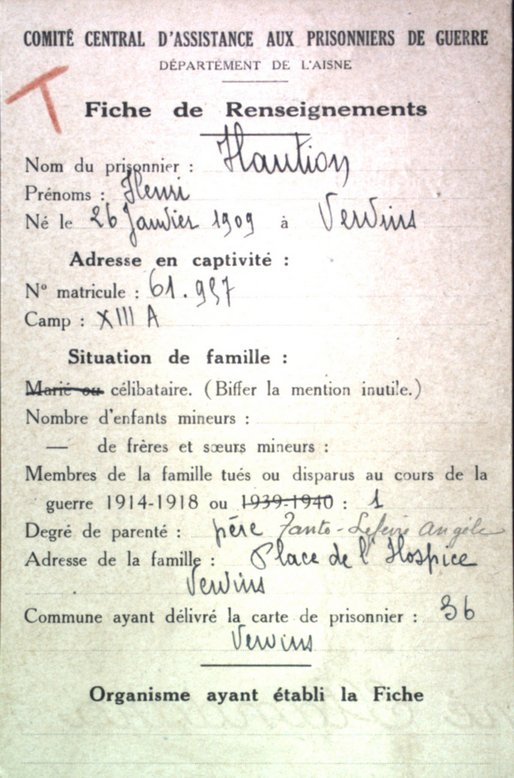 COMITÉ CENTRAL D'ASSISTANCE AUX PRISONNIERS DE GUERRE
DÉPARTEMENT DE L'AISNE
T
Fiche de Renseignements
Nom du prisonnier : Haution
Prénoms : Henri
Né le 26 Janvier 1909 à Vervins
Adresse en captivité :
N° matricule : 61.957
Camp : XIII A
Situation de famille :
Marié ou célibataire. (Biffer la mention inutile.)
Nombre d'enfants mineurs :
— de frères et sœurs mineurs :
Membres de la famille tués ou disparus au cours de la
guerre 1914-1918 ou 1939-1940 : 1
Degré de parenté : père Angèle
Adresse de la famille : Place de l'Hospice
Vervins
Commune ayant délivré la carte de prisonnier : 36
Vervins
Organisme ayant établi la Fiche